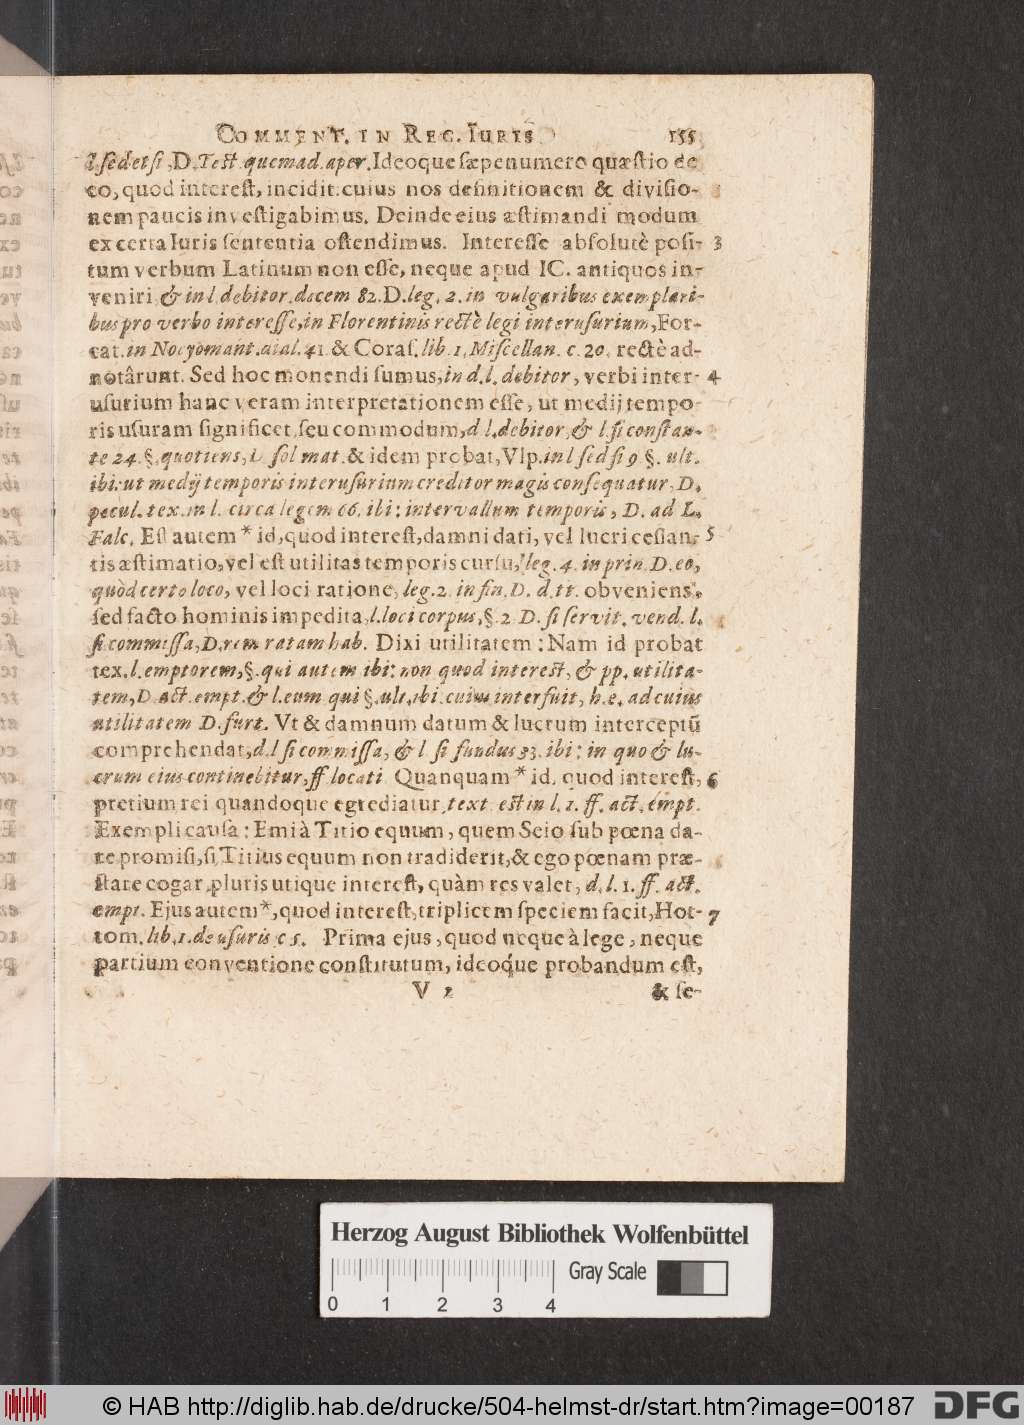 COMMENT. IN REG. IURIS 155
l. sed etsi, D. Test. quemad. aper. Ideoque sæpenumero quæstio de
eo, quod interest, incidit: cuius nos definitionem & divisio-
nem paucis investigabimus. Deinde eius æstimandi modum
ex certa Iuris sententia ostendimus. Interesse absolutè posi- 3
tum verbum Latinum non esse, neque apud IC. antiquos in-
veniri & in l. debitor. decem 82. D. leg. 2. in vulgaribus exemplari-
bus pro verbo interesse, in Florentinis rectè legi interusurium, For-
cat. in Necyomant. dial. 41 & Coras. lib. 1. Miscellan. c. 20. rectè ad-
notârunt. Sed hoc monendi sumus, in d. l. debitor, verbi inter- 4
usurium hanc veram interpretationem esse, ut medij tempo
ris usuram significet, seu commodum, d l. debitor, & l. si constan-
te 24. §. quotiens, D sol mat. & idem probat, Vlp. in l sed si 9 §. ult.
ibi: ut medij temporis interusurium creditor magis consequatur, D.
pecul. tex. in l. circa legem 66. ibi: intervallum temporis, D. ad L.
Falc. Est autem * id, quod interest, damni dati, vel lucri cessan- 5
tis æstimatio, vel est utilitas temporis cursu, leg. 4. in prin. D. eo,
quòd certo loco, vel loci ratione, leg. 2. in fin. D. d. tt. obveniens,
sed facto hominis impedita, l. loci corpus, §. 2 D. si servit. vend. l.
si commissa, D. rem ratam hab. Dixi utilitatem: Nam id probat
tex. l. emptorem, §. qui autem ibi: non quod interest, & pp. utilita-
tem, D. act. empt. & l. eum qui §. ult. ibi. cuius interfuit, h. e. ad cuius
utilitatem D. furt. Vt & damnum datum & lucrum interceptū
comprehendat, d. l si commissa, & l si fundus 33. ibi: in quo & lu-
crum eius continebitur, ff locati. Quanquam * id, quod interest, 6
pretium rei quandoque egrediatur, text. est in l. 1. ff. act. empt.
Exempli causa: Emi à Titio equum, quem Seio sub pœna da-
re promisi, si Titius equum non tradiderit, & ego pœnam præ-
stare cogar, pluris utique interest, quàm res valet, d. l. 1. ff. act.
empt. Ejus autem *, quod interest, triplicem speciem facit, Hot- 7
tom. lib. 1. de usuris c 5. Prima ejus, quod neque à lege, neque
partium conventione constitutum, ideoque probandum est,
V 2 & se-
Herzog August Bibliothek Wolfenbüttel
Gray Scale
0 1 2 3 4
© HAB http://diglib.hab.de/drucke/504-helmst-dr/start.htm?image=00187 DFG